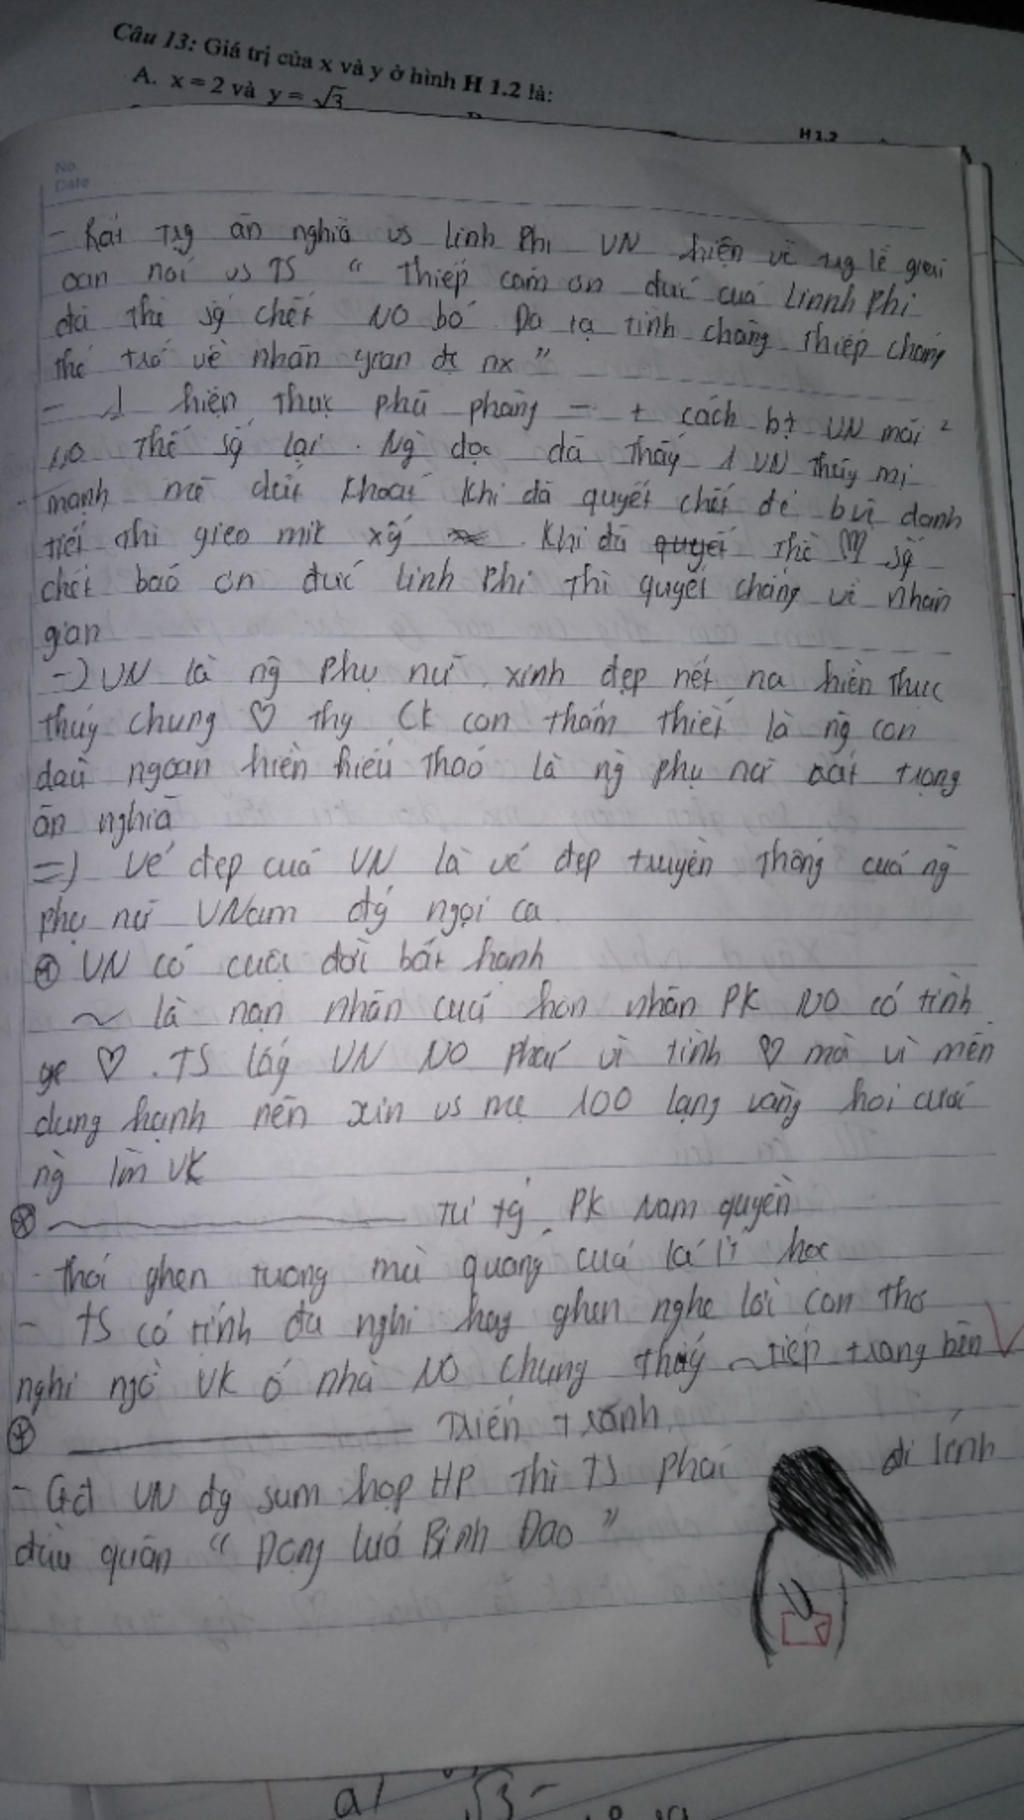 Câu 13: Giá trị của x và y ở hình H 1.2 là:
A. x = 2 và y = √3
H 1.2
No
Date
- Rất trg ân nghĩa vs Linh Phi VN hiện về trg lễ giải
oan nói vs TS " Thiếp cảm ơn đức của Linnh Phi
đã thề sg chết NO bỏ Đa tạ tình chàng Thiếp chẳng
thể trở về nhân gian đc nx "
hiện thực phũ phàng cách bt VN mãi²
NO thể sg lại . Ng đọc đã thấy 1 VN thùy mị
mạnh mẽ dứt khoát khi đã quyết chết để bvệ danh
tiết thì gieo mik xg . Khi đã quyết thề ♡ sg
chết báo ơn đức linh Phi thì quyết chẳng về nhân
gian
-) VN là ng phụ nữ xinh đẹp nết na hiền thục
thủy chung ♡ thg ck con thắm thiết là ng con
dâu ngoan hiền hiếu thảo là ng phụ nữ rất trọng
ân nghĩa
=) Vẻ đẹp của VN là vẻ đẹp truyền thống của ng
phụ nữ VNam đg ngợi ca
⊕ VN có cuộc đời bất hạnh
~ là nạn nhân của hôn nhân PK NO có tình
ye ♡ . TS lấy VN NO phải vì tình ♡ mà vì mến
dung hạnh nên xin vs mẹ 100 lạng vàng hỏi cưới
ng lm vk
⊗ tư tg PK Nam quyền
- Thói ghen tuông mù quáng của kẻ ít học
- TS có tính đa nghi hay ghen nghe lời con thơ
nghi ngờ vk ở nhà NO chung thủy ~ tiếp trang bên
⊕ Triến tranh
- Gđ VN đg sum họp HP thì TS phải đi lính
đầu quân " Động Lưỡ Bình Đao "
a/ √3